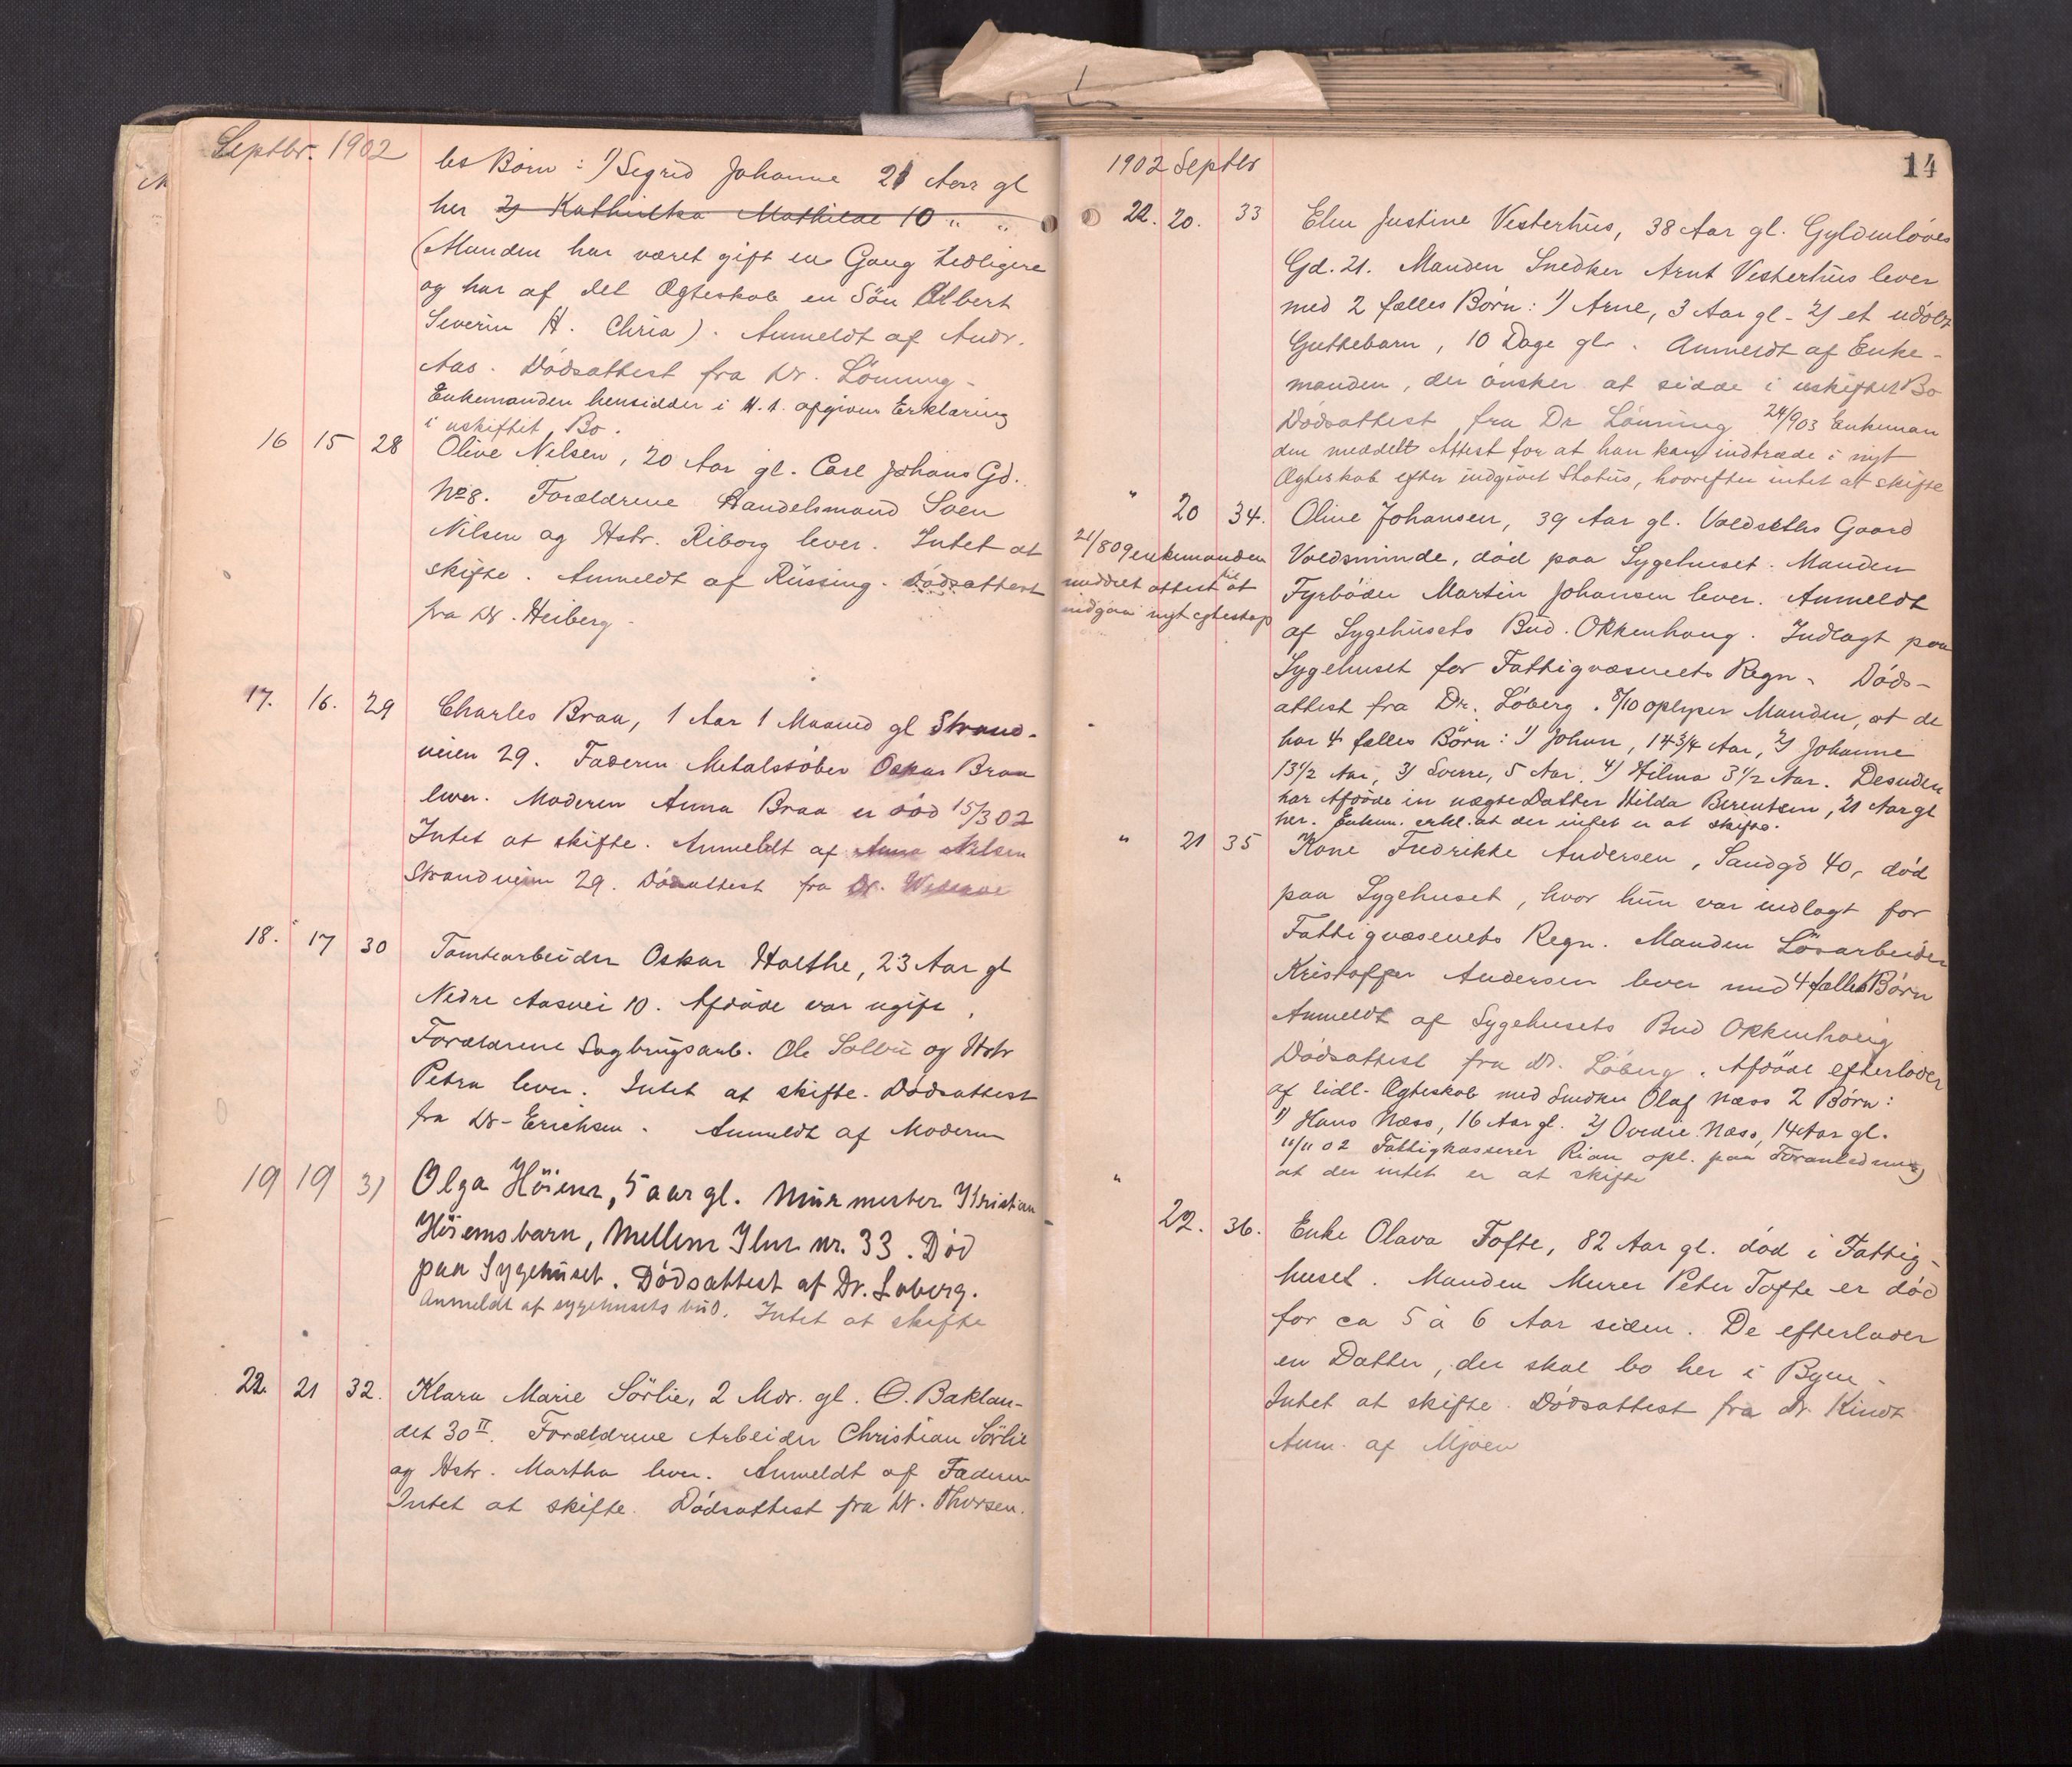 Septbr. 1902
les Børn: 1) Sigrid Johanne 21 Aar gl
her 2) Kathinka Mathilde 10 " "
(Manden har været gift en Gang tidligere
og har af det Ægteskab en Sön Albert
Severin H. Chria). Anmeldt af Andr.
Aas. Dödsattest fra Dr. Lönning.
Enkemanden hensidder i H. t. afgiven Erklæring
i uskiftet Bo.
16 15 28 Olive Nilsen, 20 Aar gl. Carl Johans Gd.
No 8. Forældrene Handelsmand Soen
Nilsen og Hstr. Riborg lever. Intet at
skifte. Anmeldt af Rüssing. Dödsattest
fra Dr. Heiberg.
17. 16. 29 Charles Braa, 1 Aar 1 Maaned gl Strand-
veien 29. Faderen Metalstöber Oskar Braa
lever. Moderen Anna Braa er död 15/3 02
Intet at skifte. Anmeldt af Anna Nilsen
Strandveien 29. Dödsattest fra Dr.
18. 17 30 Tomtearbeider Oskar Holthe, 23 Aar gl
Nedre Aasvei 10. Afdöde var ugift,
Forældrene Sagbrugsarb. Ole Solbü og Hstr
Petra lever. Intet at skifte. Dödsattest
fra Dr. Erichsen. Anmeldt af Moderen
19 19 31 Olga Höiem, 5 aar gl. Mürmester Kristian
Höiemsbarn, Mellem Ilen nr. 33. Död
paa Sygehüset. Dödsattest af Dr. Loberg.
Anmeldt af sygehusets büd. Intet at skifte
22. 21 32. Klara Marie Sörlie, 2 Mdr. gl. O. Baklan-
det 30 II. Forældrene Arbeider Christian Sörlie
og Hstr. Martha lever. Anmeldt af Faderen
Intet at skifte. Dödsattest fra Dr. Thorsen.
1902 Septbr
14
22. 20. 33 Elen Justine Vesterhüs, 38 Aar gl. Gyldenlöves
Gd. 21. Manden Snedker Arnt Vesterhüs lever
med 2 fælles Börn: 1) Arne, 3 Aar gl. 2) et udöbt
Guttebarn, 10 Dage gl. Anmeldt af Enke-
manden, der önsker at sidde i uskiftet Bo
Dödsattest fra Dr Lönning 24/9 03 Enkeman
den meddelt Attest for at han kan indtræde i nyt
Ægteskab efter indgivet Status, hvorefter intet at skifte
" 20 34. Oline Johansen, 39 Aar gl. Voldseths Gaard
21/8 09 enkemanden
meddelt attest til at
indgaa nyt egteskap
Voldsminde, död paa Sygehuset. Manden
Fyrböder Martin Johansen lever. Anmeldt
af Sygehüsets Büd. Okkenhaug. Indlagt paa
Sygehuset for Fattigvæsenets Regn. Döds-
attest fra Dr. Löberg. 8/10 oplyser Manden, at de
har 4 fælles Börn: 1) Johan, 14 3/4 Aar, 2) Johanne
13 1/2 Aar, 3) Sverre, 5 Aar. 4) Hilma 3 1/2 Aar. Desuden
har Afdöde en uægte Datter Hilda Berentsen, 21 Aar gl
her. Enkem. erkl. at der intet er at skifte.
" 21 35 Kone Fredrikke Andersen, Sandgd 40, död
paa Sygehuset, hvor hün var indlagt for
Fattigvæsenets Regn. Manden Lösarbeider
Kristoffer Andersen lever med 4 fælles Börn
Anmeldt af Sygehusets Bud Okkenhaug
Dödsattest fra Dr. Löberg. Afdöde efterlader
af tidl. Ægteskab med Smeden Olaf Næss 2 Börn:
1) Hans Næss, 16 Aar gl. 2) Ovedie Næss, 14 Aar gl.
11/11 02 Fattigkasserer Rian opl. paa Foranledning
at der intet er at skifte
" 22. 36. Enke Olava Tofte, 82 Aar gl. död i Fattig-
huset. Manden Murer Peter Tofte er död
for ca 5 à 6 Aar siden. De efterlader
en Datter, der skal bo her i Byen.
Intet at skifte. Dödsattest fra Dr. Kindt
Anm. af Mjøen